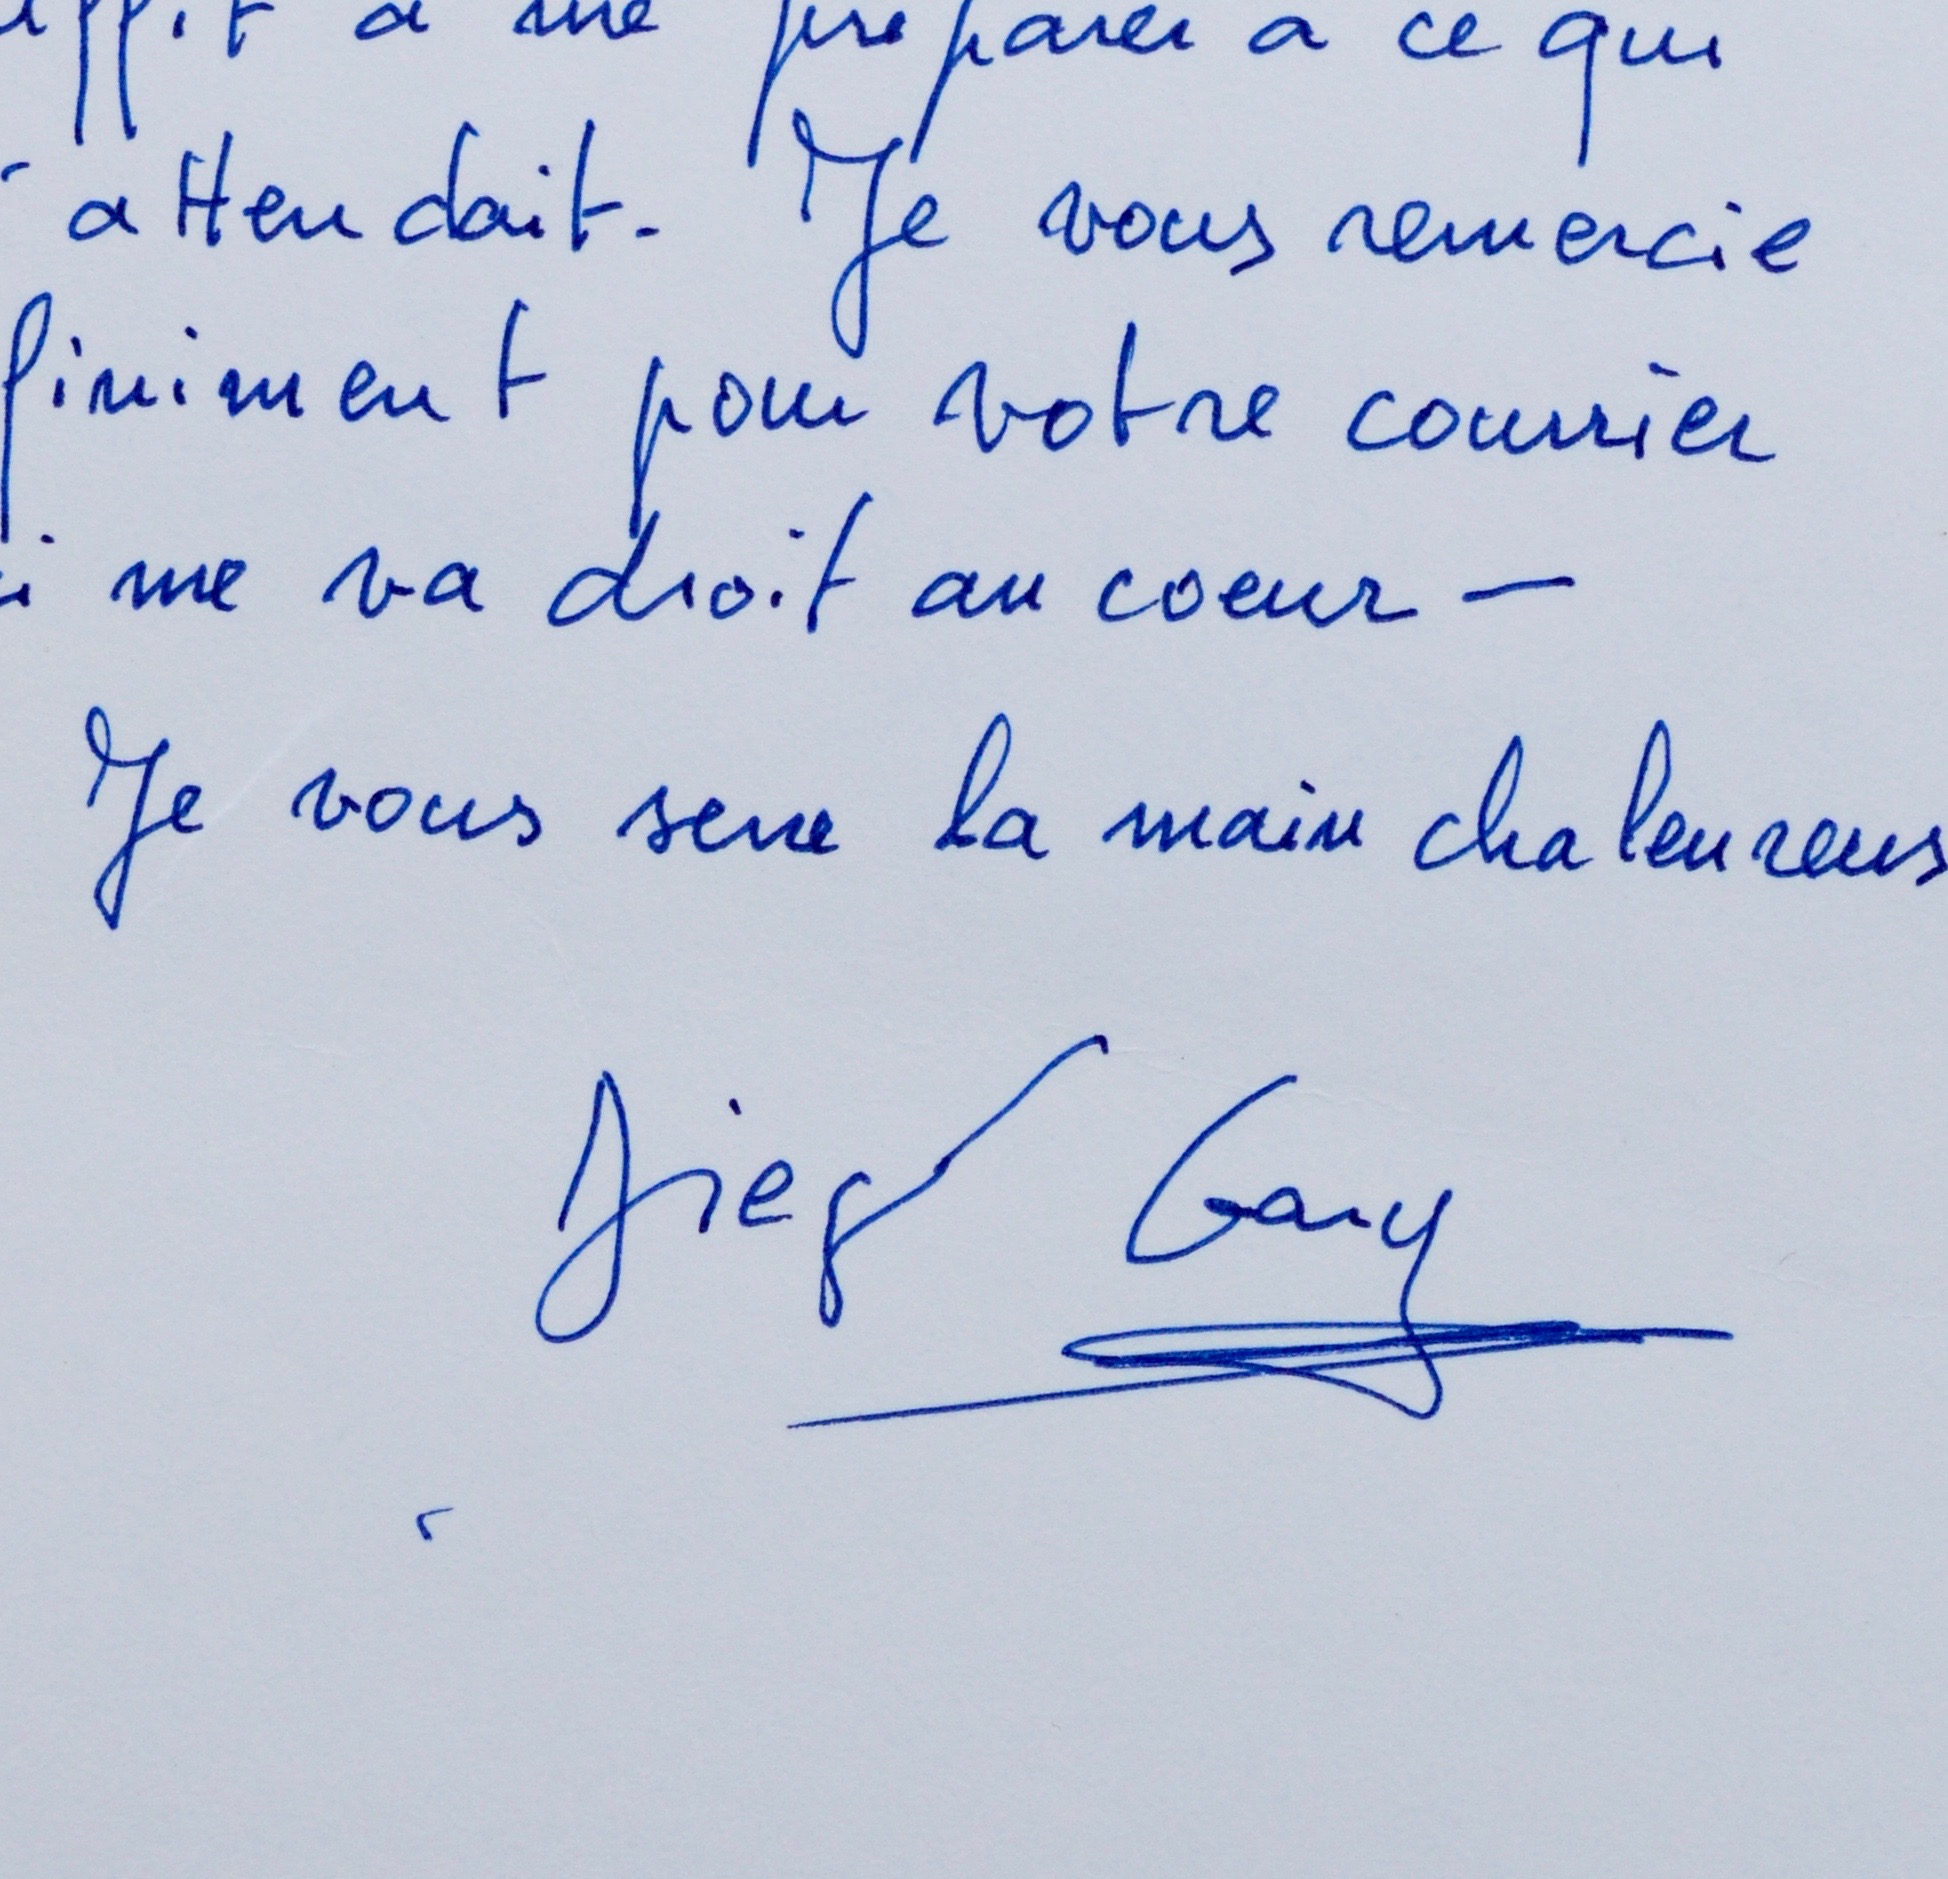 uffit à me préparer à ce qui
'attendait. Je vous remercie
finiment pour votre courrier
i me va droit au coeur —
Je vous serre la main chaleureus
Diego Gary